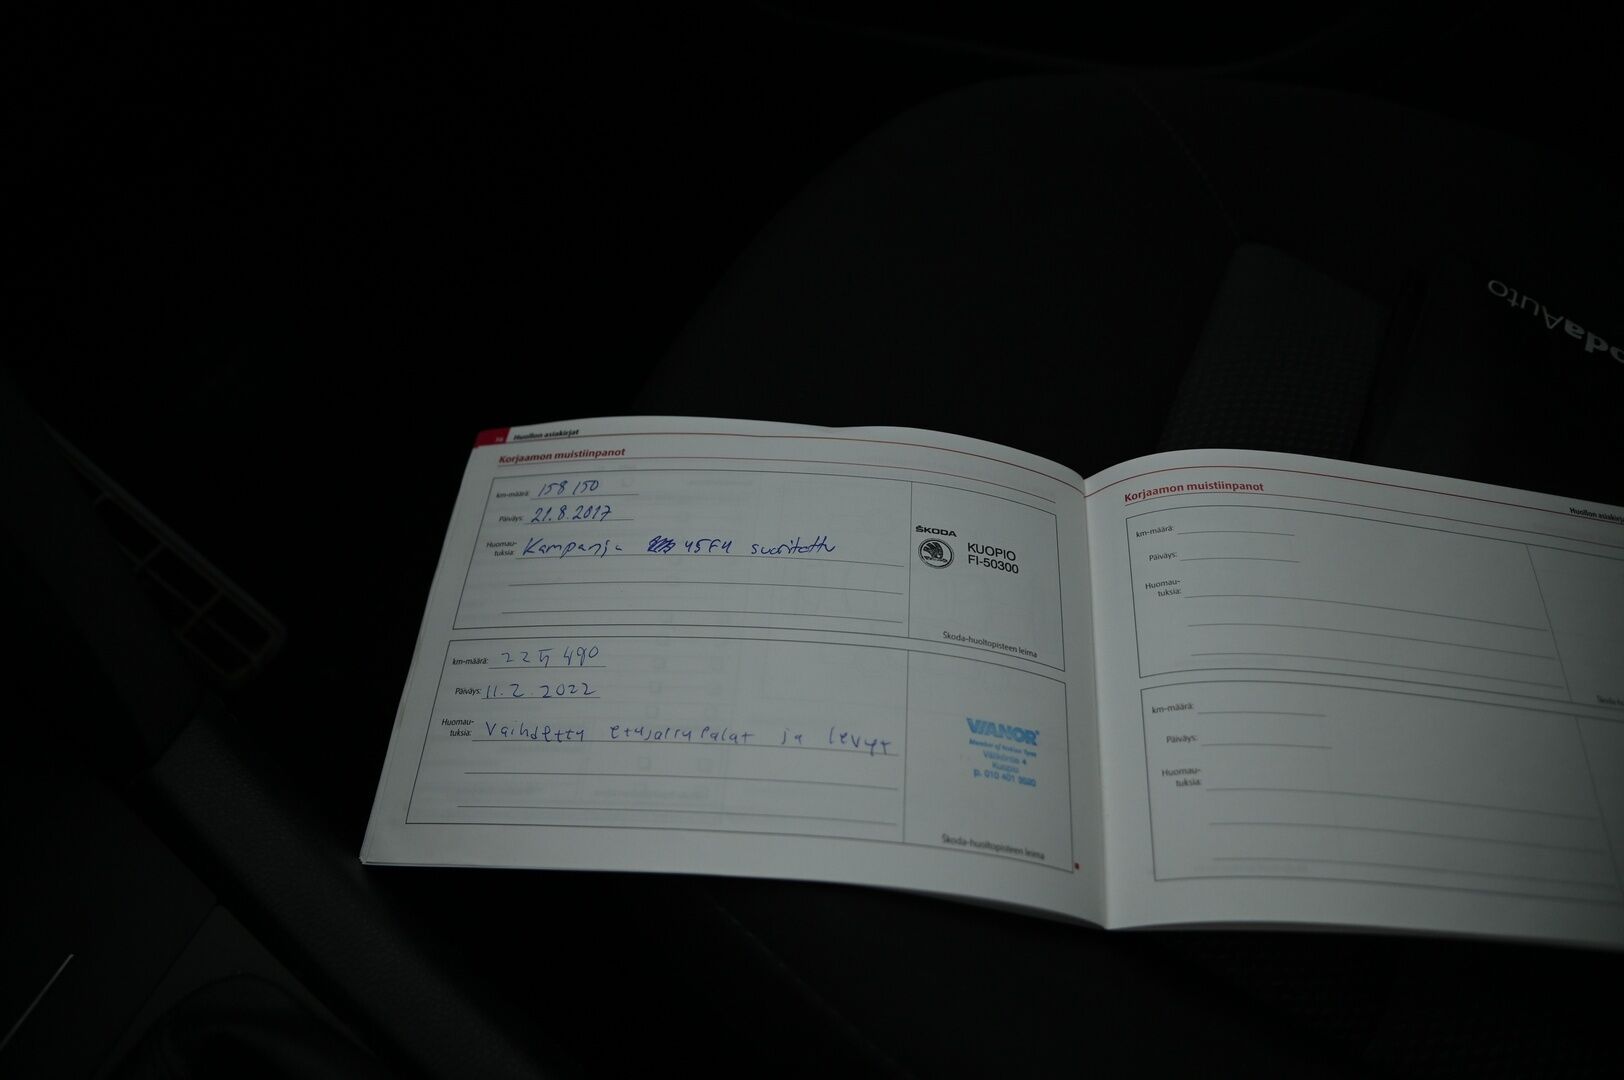 Huollon asiakirjat
Korjaamon muistiinpanot
km-määrä: 158 150
Päiväys: 21.8.2017
Huomau-
tuksia: Kampanja 45F4 suoritettu
ŠKODA
KUOPIO
FI-50300
Škoda-huoltopisteen leima
km-määrä: 225 490
Päiväys: 11.2.2022
Huomau-
tuksia: Vaihdettu etujarrupalat ja levyt
VIANOR
Member of Nokian Tyres
Kuopio
p. 010 401
Škoda-huoltopisteen leima
Korjaamon muistiinpanot
Huollon asiakirj
km-määrä:
Päiväys:
Huomau-
tuksia:
km-määrä:
Päiväys:
Huomau-
tuksia:
odaAuto